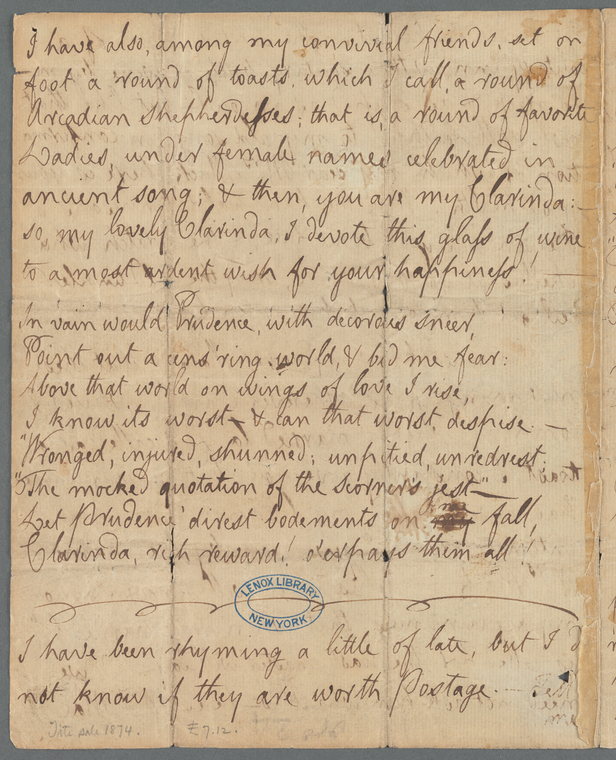 I have also, among my convivial friends, set on
foot a round of toasts, which I call, a round of
Arcadian Shepherdesses; that is, a round of favorite
Ladies, under female names celebrated in
ancient song; & then, you are my Clarinda:—
so, my lovely Clarinda, I devote this glass of wine
to a most ardent wish for your happiness. —
In vain would Prudence, with decorous sneer,
Point out a cens'ring world, & bid me fear:
Above that world on wings of love I rise,
I know its worst & can that worst despise —
"Wronged, injured, shunned; unpitied, unredrest;
"The mocked quotation of the scorner's jest" —
Let Prudence' direst bodements on me fall,
Clarinda, rich reward! o'erpays them all.
LENOX LIBRARY
NEW YORK
I have been rhyming a little of late, but I d
not know if they are worth Postage. — Tell
me
Tite sale 1874. £7.12.